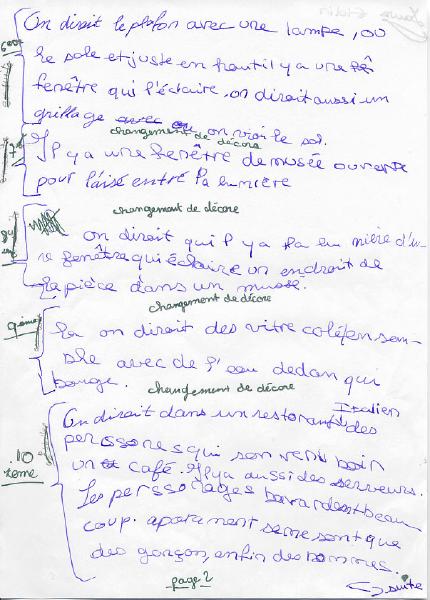 On dirait le plafon avec une lampe, ou
le sole et juste en haut il y a une
fenêtre qui l'éclaire, on dirait aussi un
grillage on voit le sol.
changement de décore
Il y a une fenêtre de musée ouverte
pour laisé entré la lumière
changement de décore
on dirait qu'il y a la lumière d'u-
ne fenêtre qui éclaire un endroit de
la pièce dans un musé.
changement de décore
9ème
la on dirait des vitre colé en sem-
ble avec de l'eau dedan qui
bouge.
changement de décore
On dirait dans un restorant Italien des
perssones qui son venu boir
un café. Il y a aussi des serveurs.
10
ième
Les perssonages bavardest beau
coup. aparament se ne sont que
des garçon, enfin des hommes.
page 2
suite